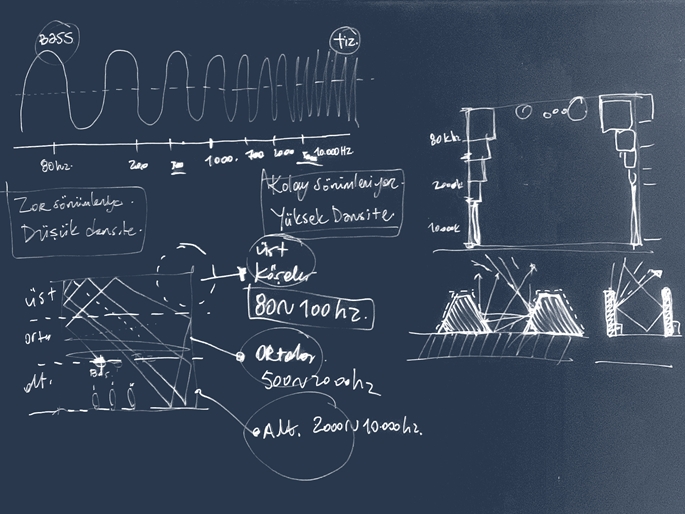 BASS
tiz.
80hz.
200
1000.
10.000HZ
Zor sönümleniyor.
Düşük dansite.
Kolay sönümleniyor.
Yüksek Dansite
üst
orta
alt.
üst
Köşeler
80~100hz.
Ortalar.
500~2000hz
Alt. 2000~10.000hz.
80khz
2000k
10000k